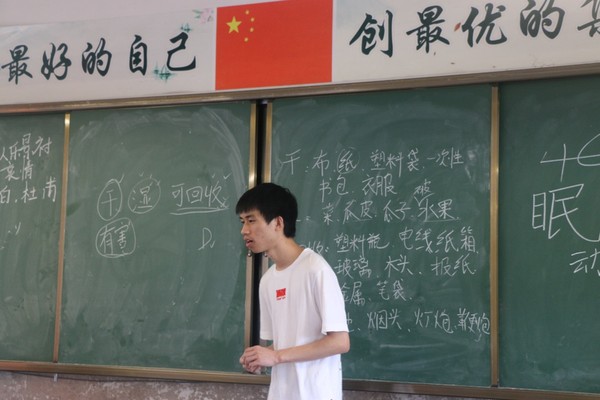 最好的自己
创最优的
人乐景衬
哀情
白、杜甫
干 湿 可回收
有害
D
干：布、纸、塑料袋、一次性
书包、衣服
菜、瓜皮、瓜子、水果
塑料瓶、电线、纸箱
玻璃、木头、报纸
金属、笔袋
烟头、灯炮
眠
动